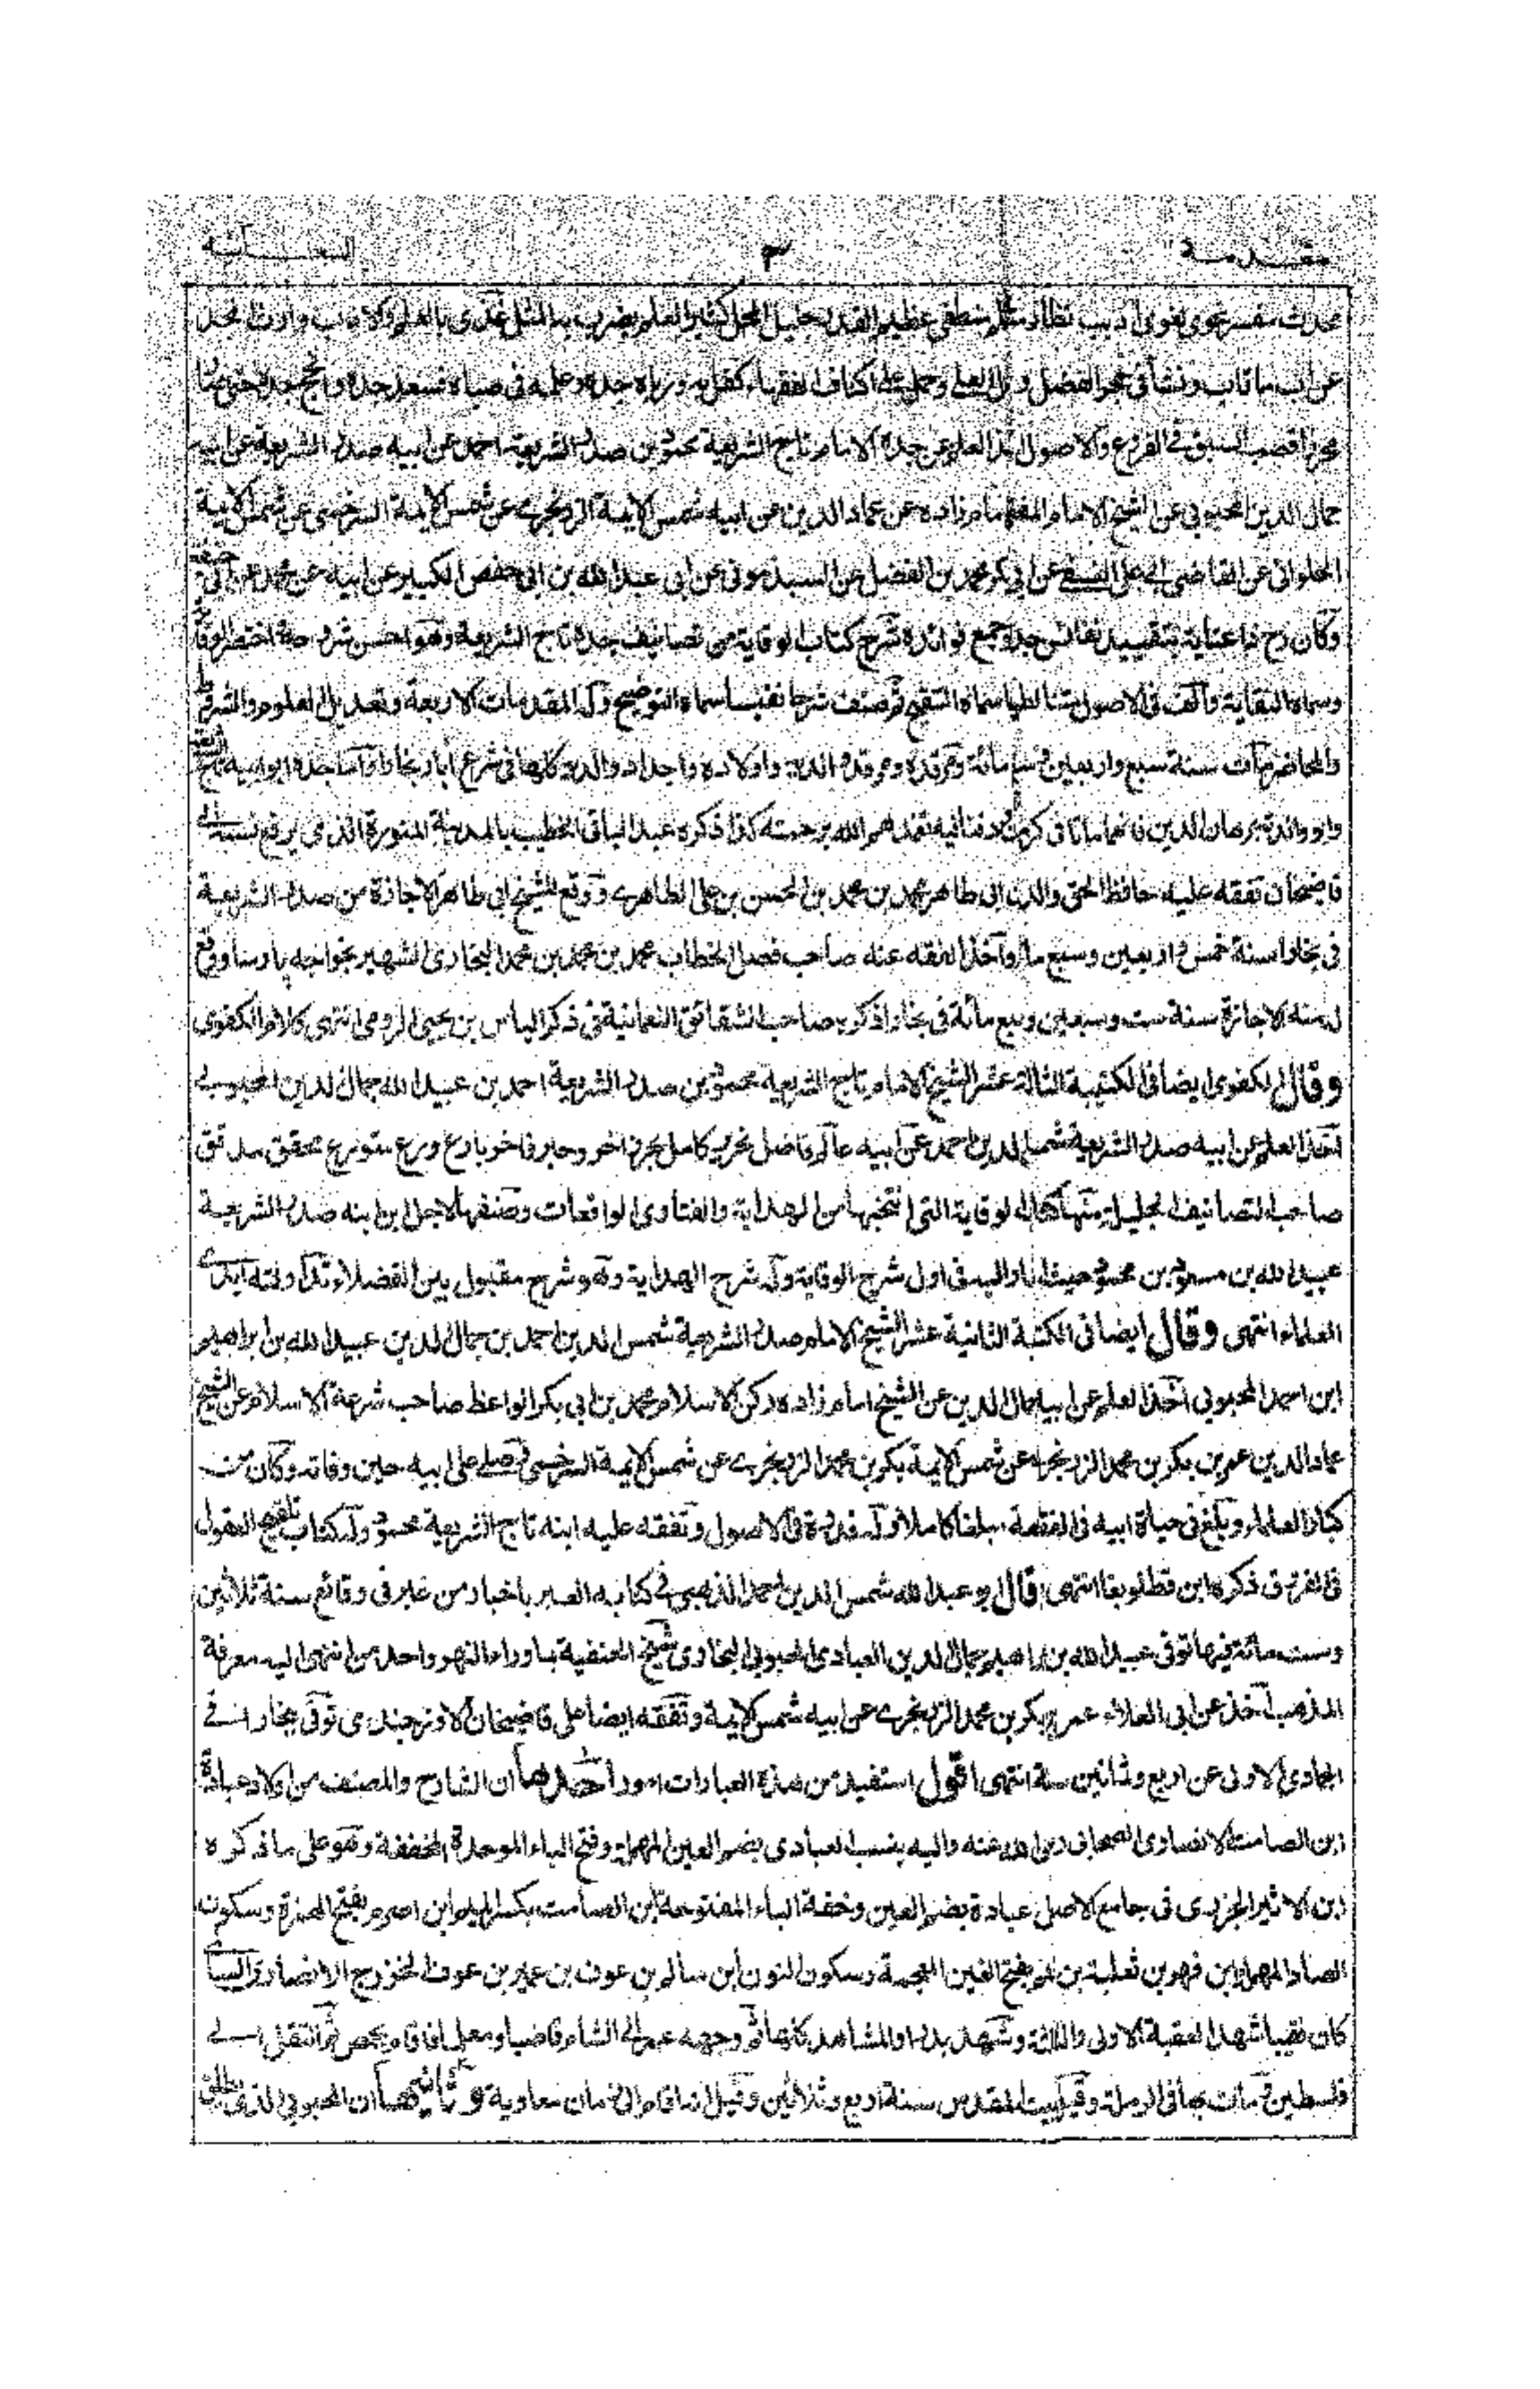 مقدمة ٣ السعاية
محدث مفسر نحوى لغوى اديب نظار متكلم منطقى عظيم القدر جليل المحل كثير العلم يضرب به المثل غذى بالعلم والادب وارث المجد
عن اب فاب ونشأ فى حجر الفضل ونال العلى وحمل على اكتاف الفقهاء كفله ورباه جده وعلمه فى صباه فسعد جده وانجح جده حتى
محرزا قصب السبق فى الفروع والاصول اخذ العلم عن جده الامام تاج الشريعة محمود بن صدر الشريعة احمد عن ابيه صدر الشريعة عن ابيه
جمال الدين المحبوبى عن الشيخ الامام المفتى امام زاده عن عماد الدين عن ابيه شمس الايمة الزرنجرى عن شمس الايمة السرخسى عن شمس الايمة
الحلوانى عن القاضى ابى على النسفى عن ابى بكر محمد بن الفضل عن السبذمونى عن ابى عبد الله بن ابى حفص الكبير عن ابيه عن محمد عن ابى حنيفة
وكان رح ذا عناية بتقييد نفائس جده وجمع فوائده شرح كتاب الوقاية من تصانيف جده تاج الشريعة وهو احسن شروحه ثم اختصر الوقاية
وسماه النقاية والف فى الاصول متنا لطيفا سماه التنقيح ثم صنف شرحا نفيسا سماه التوضيح وله المقدمات الاربعة وتعديل العلوم والشروط
والمحاضر مات سنة سبع واربعين وسبعمائة ومرقده ومرقد والديه واولاده واجداد والديه كلها فى شرع اباد بخارا واما جده ابو ابيه تاج الشريعة
وابو والدته برهان الدين فانهما ماتا فى كرمان ودفنا فيه تغمدهم الله برحمته كذا ذكره عبد الباقى الخطيب بالمدينة المنورة الذى يرفع نسبه الى
قاضيخان تفقه عليه حافظ الحق والدين ابى طاهر محمد بن محمد بن الحسن بن على الطاهرى ووقع للشيخ ابى طاهر الاجازة من صدر الشريعة
فى بخارا سنة خمس واربعين وسبع مائة واخذ الفقه عنه صاحب فصل الخطاب محمد بن محمد بن محمد البخارى الشهير بخواجه پارسا ووقع
له منه الاجازة سنة ست وسبعين وسبع مائة فى بخارا ذكره صاحب الشقائق النعمانية فى ذكر الياس بن يحيى الرومى انتهى كلام الكفوى
وقال الكفوى ايضا فى الكتيبة الثالثة عشر الشيخ الامام تاج الشريعة محمود بن صدر الشريعة احمد بن عبيد الله جمال الدين المحبوبى
اخذ العلم عن ابيه صدر الشريعة شمس الدين احمد عن ابيه عالم فاضل نحرير كامل بحر زاخر وحبر فاخر بارع ورع متورع محقق مدقق
صاحب التصانيف الجليلة منها كتاب الوقاية التى انتخبها من الهداية والفتاوى والواقعات وصنفها لاجل ابن ابنه صدر الشريعة
عبيد الله بن مسعود بن محمود حيث اشار اليه فى اول شرح الوقاية وله شرح الهداية وهو شرح مقبول بين الفضلاء تداولته ايدى
العلماء انتهى وقال ايضا فى الكتيبة الثانية عشر الشيخ الامام صدر الشريعة شمس الدين احمد بن جمال الدين عبيد الله بن ابراهيم
ابن احمد المحبوبى اخذ العلم عن ابيه جمال الدين عن الشيخ امام زاده ركن الاسلام محمد بن ابى بكر الواعظ صاحب شرعة الاسلام عن الشيخ
عماد الدين عمر بن بكر بن محمد الزرنجرى عن شمس الايمة بكر بن محمد الزرنجرى عن شمس الايمة السرخسى وصلى على ابيه حين وفاته وكان من
كبار العلماء وبلغ فى حياة ابيه فى الفقه مبلغا كاملا وله قدرة فى الاصول وتفقه عليه ابنه تاج الشريعة محمود وله كتاب تلقيح العقول
فى الفروق ذكره ابن قطلوبغا انتهى قال ابو عبد الله شمس الدين احمد الذهبى فى كتابه العبر باخبار من غبر فى وقائع سنة ثلاثين
وست مائة فيها توفى عبيد الله بن ابراهيم جمال الدين العبادى المحبوبى البخارى شيخ الحنفية بما وراء النهر واحد من انتهى اليه معرفة
المذهب اخذ عن ابى العلاء عمر بن بكر بن محمد الزرنجرى عن ابيه شمس الايمة وتفقه ايضا على قاضيخان الاوزجندى توفى ببخارا فى
الجمادى الاولى عن اربع وثمانين سنة انتهى اقول استفيد من هذه العبارات امور احدها ان الشارح والمصنف من اولاد عبادة
ابن الصامت الانصارى الصحابى رضى الله عنه واليه ينسب العبادى بضم العين المهملة وفتح الباء الموحدة المخففة وهو على ما ذكره
ابن الاثير الجزرى فى جامع الاصول عبادة بضم العين وخفة الباء المفتوحة ابن الصامت بكسر الميم ابن اصرم بفتح الهمزة وسكون
الصاد المهملة ابن فهر بن ثعلبة بن غنم بفتح الغين المعجمة وسكون النون ابن سالم بن عوف بن عمير بن عوف الخزرج الانصارى السالمى
كان نقيبا شهد العقبة الاولى والثانية وشهد بدرا والمشاهد كلها ثم وجهه عمر الى الشام قاضيا ومعلما فاقام بحمص ثم انتقل الى
فلسطين ثم مات بها فى الرملة وقيل ببيت المقدس سنة اربع وثلاثين وقيل انه بقى الى زمان معاوية وثانيها ان المحبوبى الذى يطلق